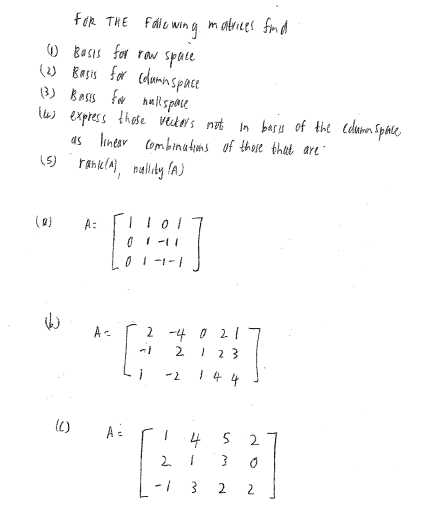 FOR THE Following matrices find
(1) Basis for row space
(2) Basis for column space
(3) Basis for nullspace
(4) express those vectors not in basis of the column space
as linear combinations of those that are.
(5) rank(A), nullity (A)
(a) A = [ 1 1 0 1
0 1 -1 1
0 1 -1 -1 ]
(b) A = [ 2 -4 0 2 1
-1 2 1 2 3
1 -2 1 4 4 ]
(c) A = [ 1 4 5 2
2 1 3 0
-1 3 2 2 ]